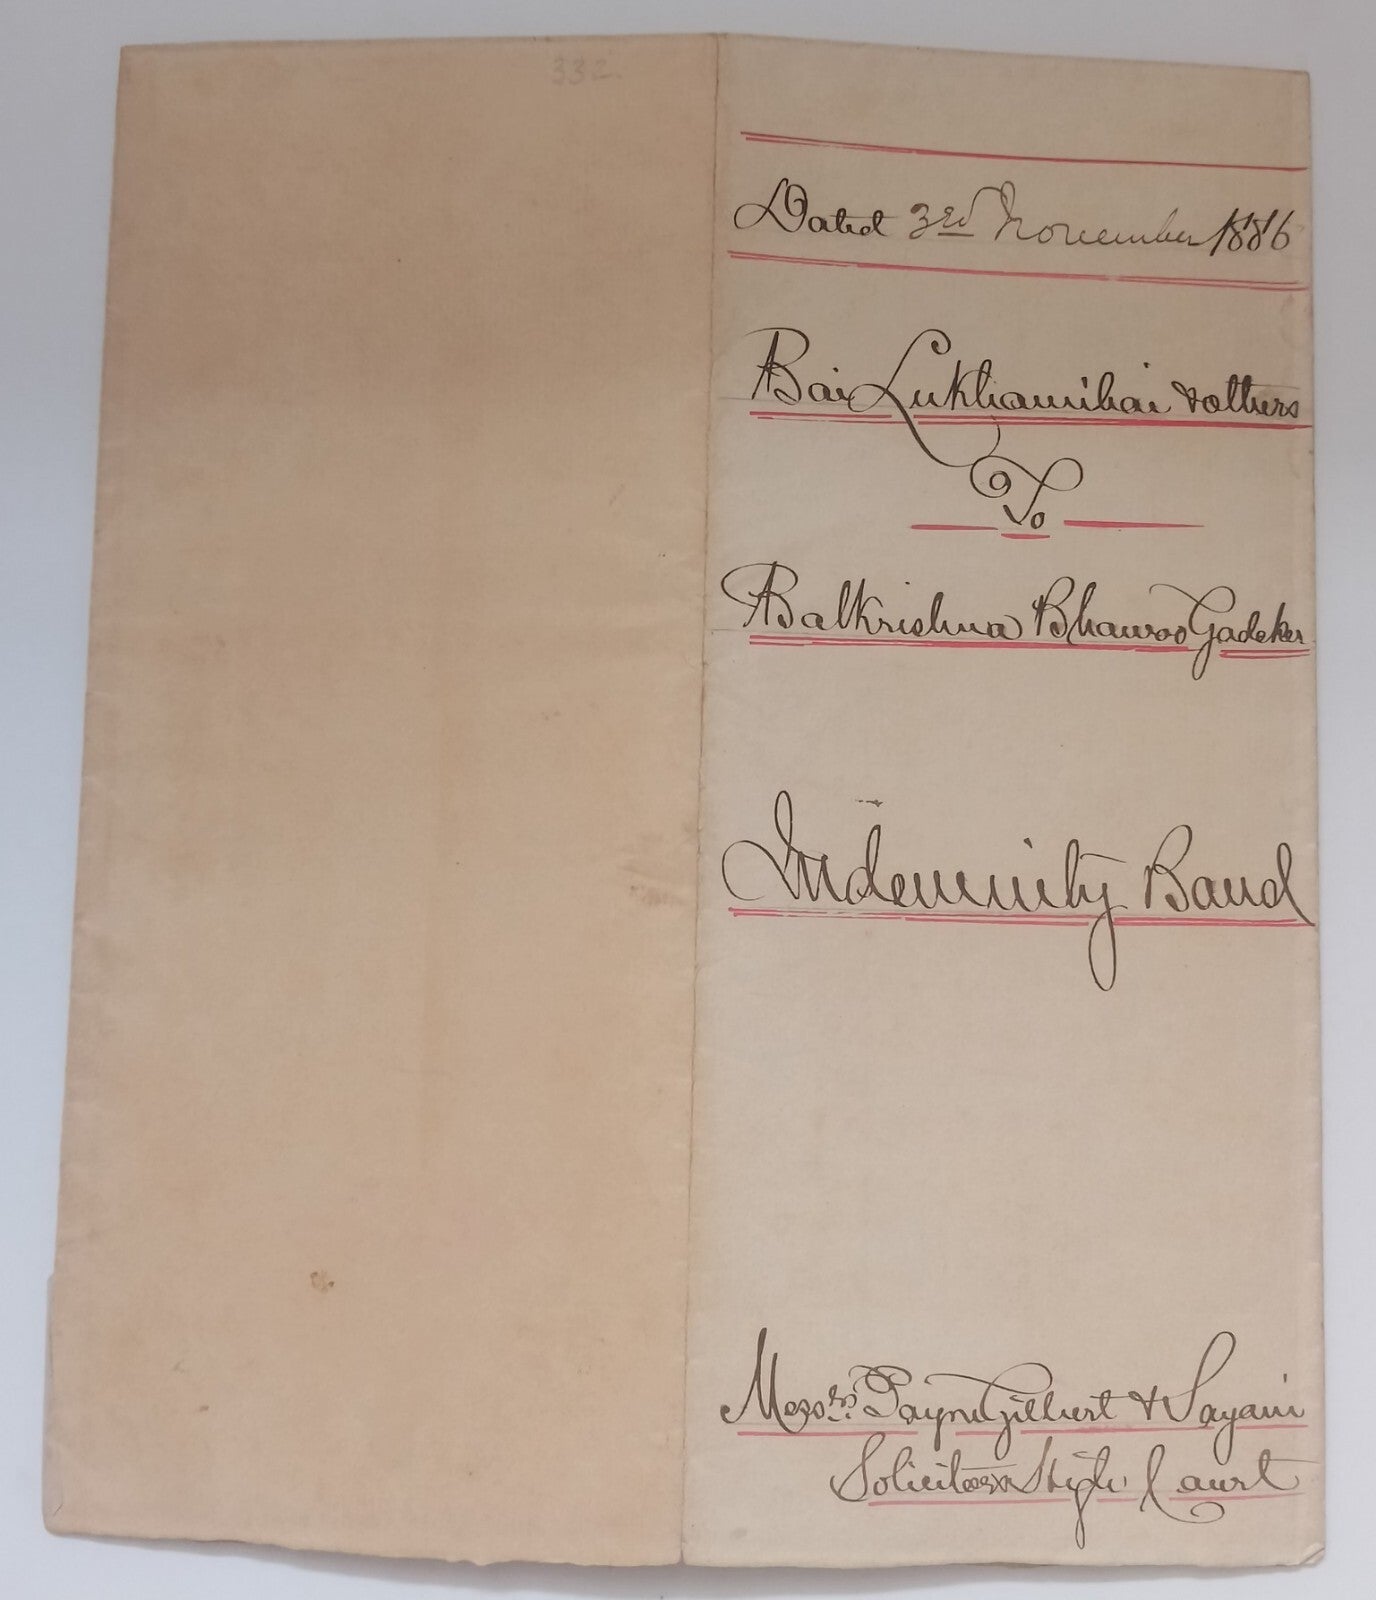 332.
Dated 3rd November 1886
Bai Lukhamibai & others
To
Balkrishna Bhawroo Gadeker
Indemnity Bond
Messrs. Payne Gilbert & Sayani
Solicitors High Court